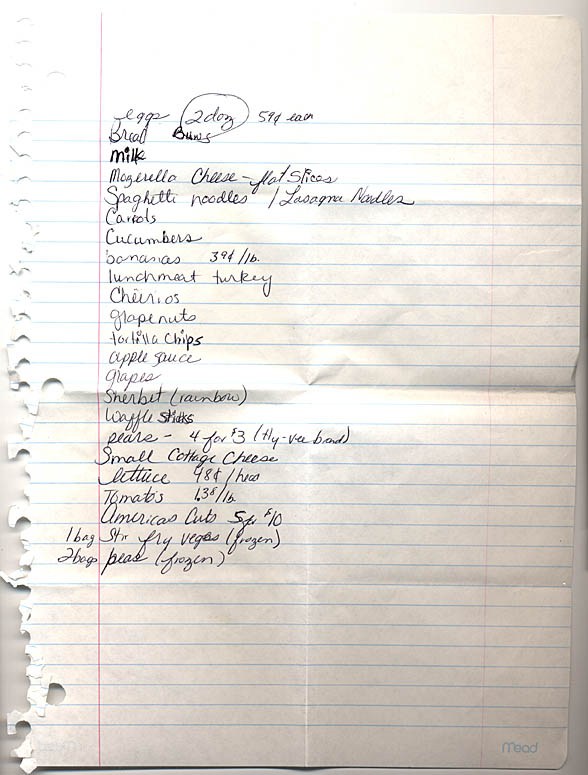 eggs 2 doz 59¢ each
Bread Buns
milk
Mozerella Cheese - flat Slices
Spaghetti noodles / Lasagna Noodles
Carrots
Cucumbers
bananas 39¢/lb.
lunchmeat turkey
Cheirios
grapenuts
tortilla chips
apple sauce
grapes
Sherbet (rainbow)
Waffle sticks
pears - 4 for $3 (Hy-vee brand)
Small Cottage Cheese
lettuce 98¢/head
Tomato's 1.38/lb.
Americas Cuts 5 for $10
1 bag Stir fry veges (frozen)
2 bags peas (frozen)
Mead